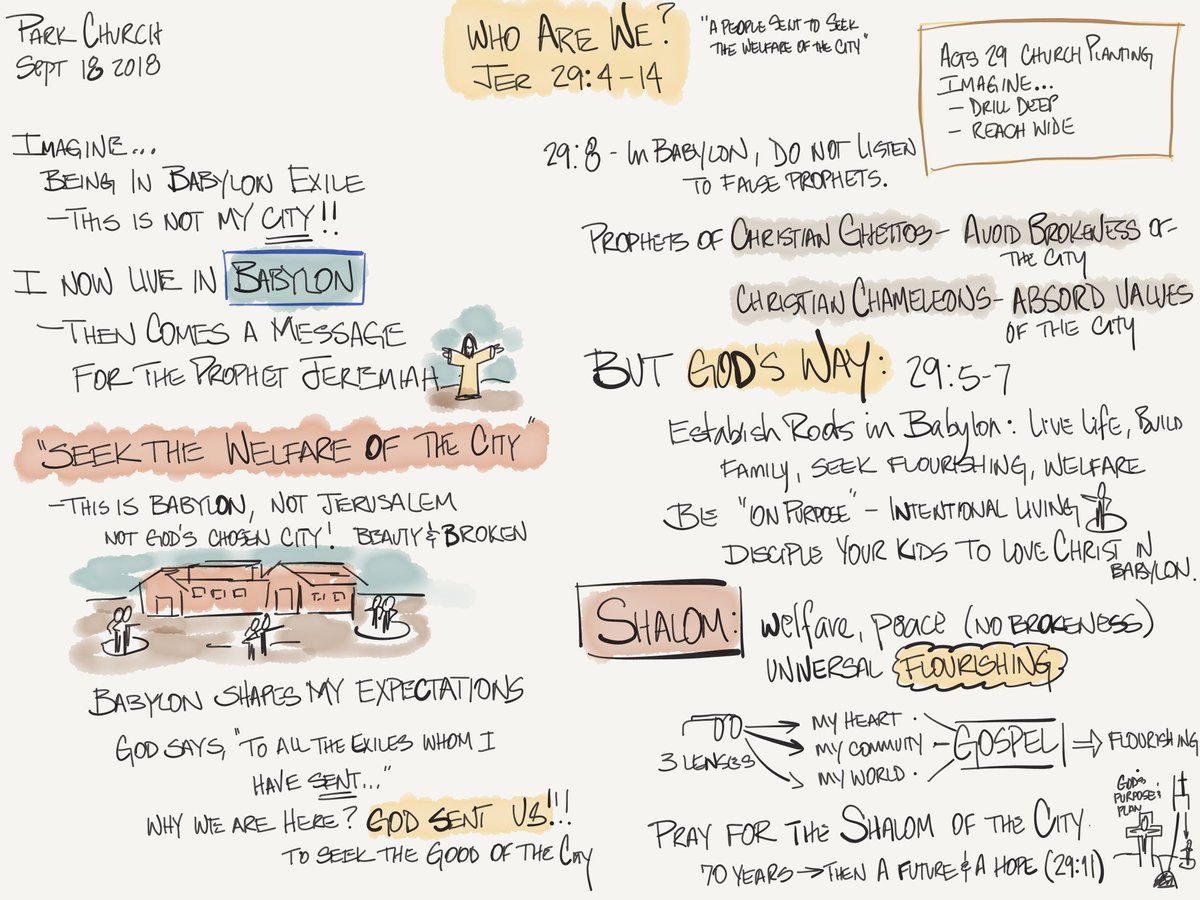 PARK CHURCH
SEPT 18 2018
WHO ARE WE?
JER 29:4-14
"A PEOPLE SENT TO SEEK
THE WELFARE OF THE CITY"
ACTS 29 CHURCH PLANTING
IMAGINE...
- DRILL DEEP
- REACH WIDE
IMAGINE...
BEING IN BABYLON EXILE
- THIS IS NOT MY CITY!!
I NOW LIVE IN BABYLON
- THEN COMES A MESSAGE
FOR THE PROPHET JEREMIAH
"SEEK THE WELFARE OF THE CITY"
- THIS IS BABYLON, NOT JERUSALEM
NOT GOD'S CHOSEN CITY! BEAUTY & BROKEN
BABYLON SHAPES MY EXPECTATIONS
GOD SAYS, "TO ALL THE EXILES WHOM I
HAVE SENT..."
WHY WE ARE HERE? GOD SENT US!!!
TO SEEK THE GOOD OF THE CITY
29:8 - IN BABYLON, DO NOT LISTEN
TO FALSE PROPHETS.
PROPHETS OF CHRISTIAN GHETTOS - AVOID BROKENESS OF
THE CITY
CHRISTIAN CHAMELEONS - ABSORD VALUES
OF THE CITY
BUT GOD'S WAY: 29:5-7
Establish Roots in Babylon: LIVE LIFE, BUILD
FAMILY, SEEK FLOURISHING, WELFARE
BE "ON PURPOSE" - INTENTIONAL LIVING
DISCIPLE YOUR KIDS TO LOVE CHRIST IN
BABYLON.
SHALOM: welfare, peace (NO BROKENESS)
UNIVERSAL FLOURISHING
3 LENSES
MY HEART
MY COMMUITY
MY WORLD
GOSPEL ⇒ FLOURISHING
GOD'S
PURPOSE &
PLAN
PRAY FOR THE SHALOM OF THE CITY.
70 YEARS → THEN A FUTURE & A HOPE (29:11)